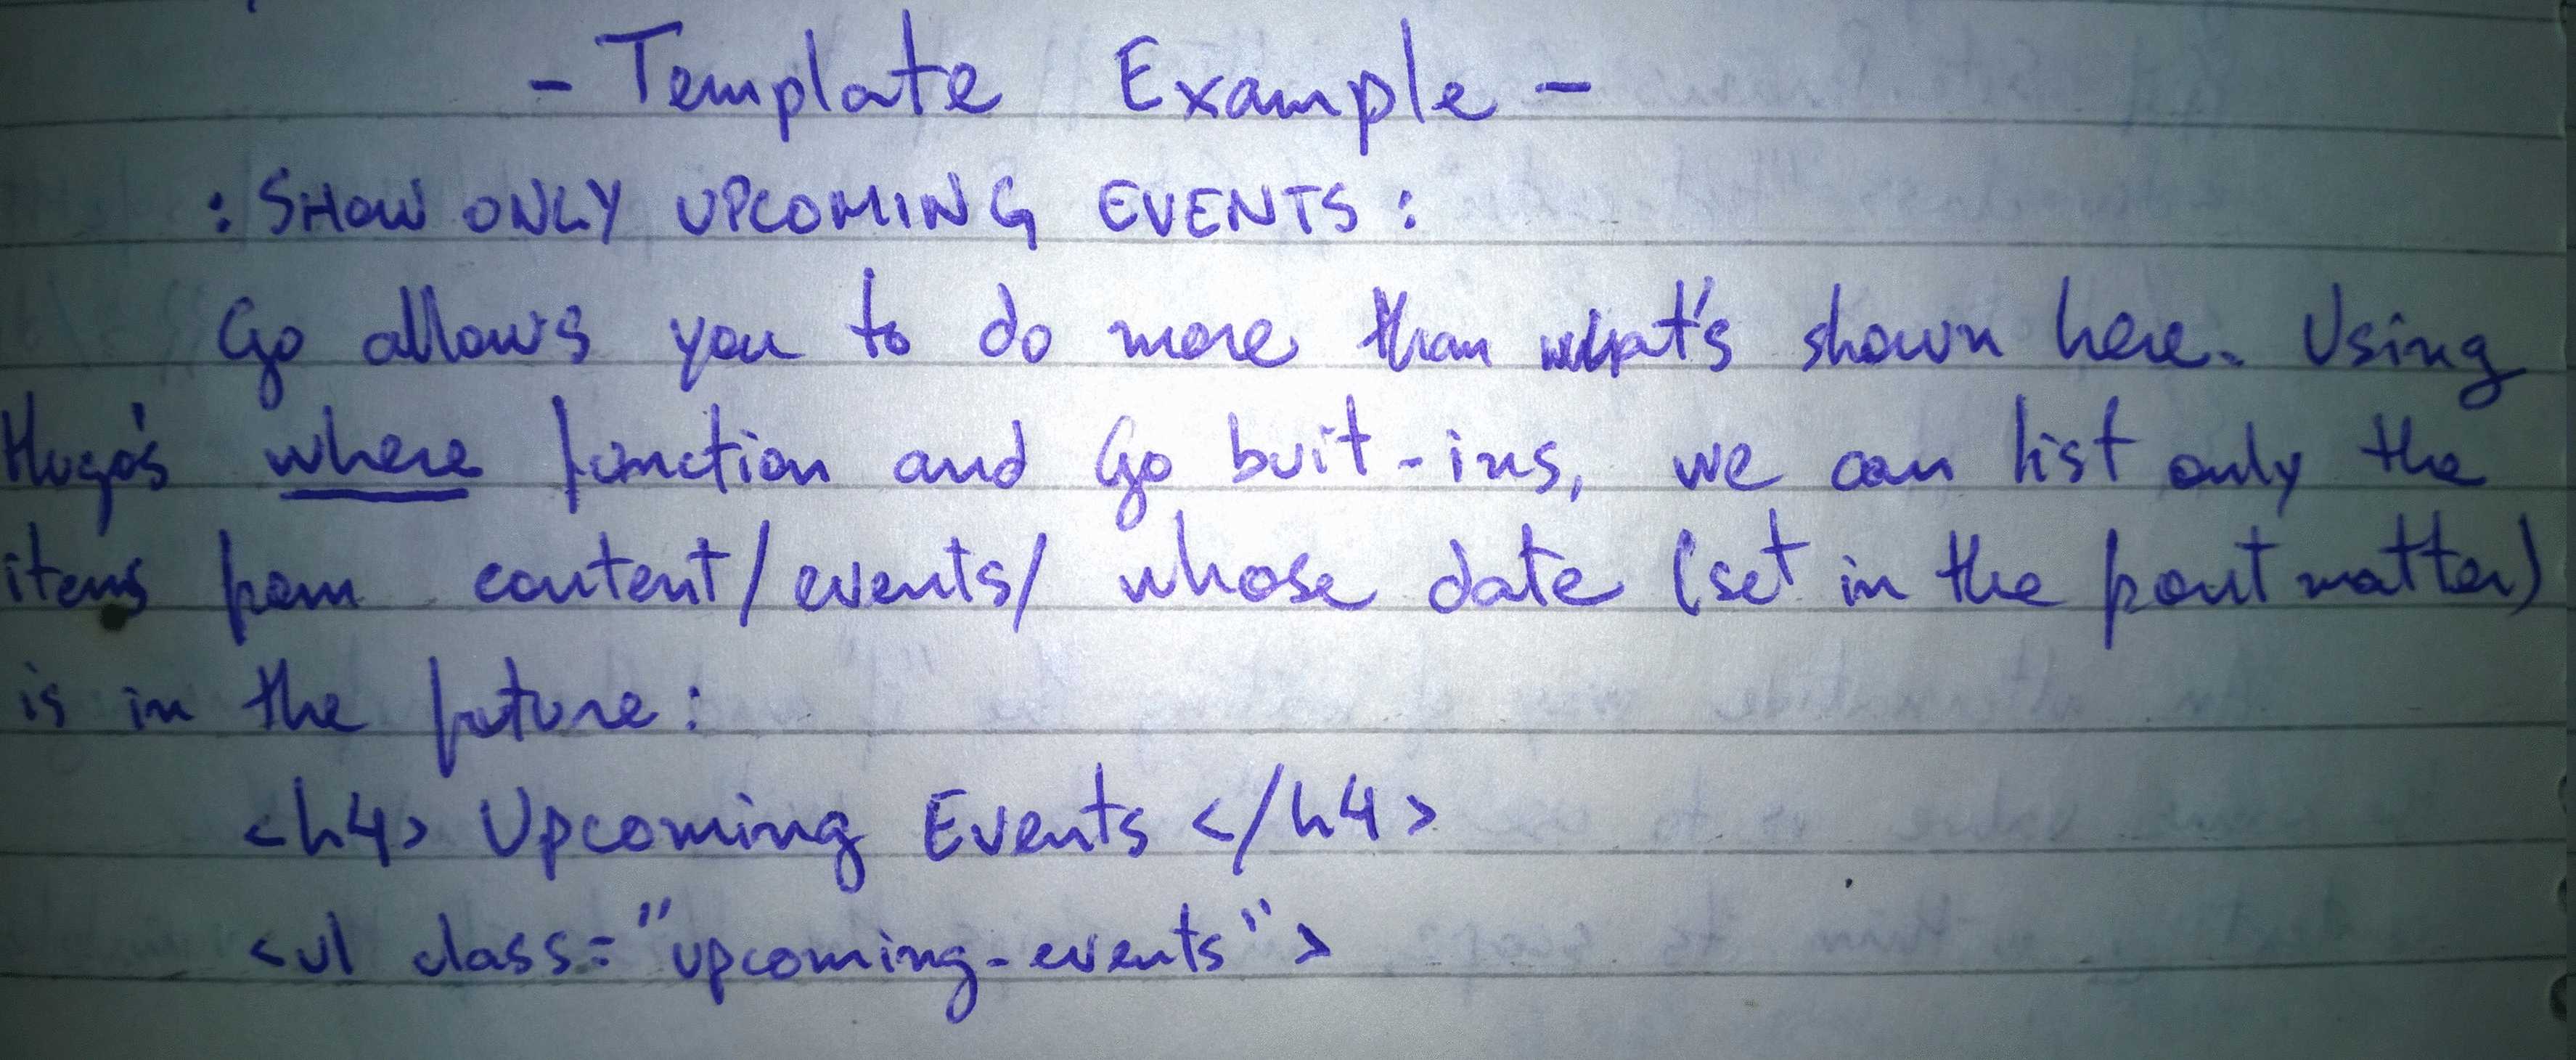 - Template Example -
: SHOW ONLY UPCOMING EVENTS :
Go allows you to do more than what's shown here. Using
Hugo's where function and Go buit-ins, we can list only the
items from content/events/ whose date (set in the front matter)
is in the future:
<h4> Upcoming Events </h4>
<ul class="upcoming-events">